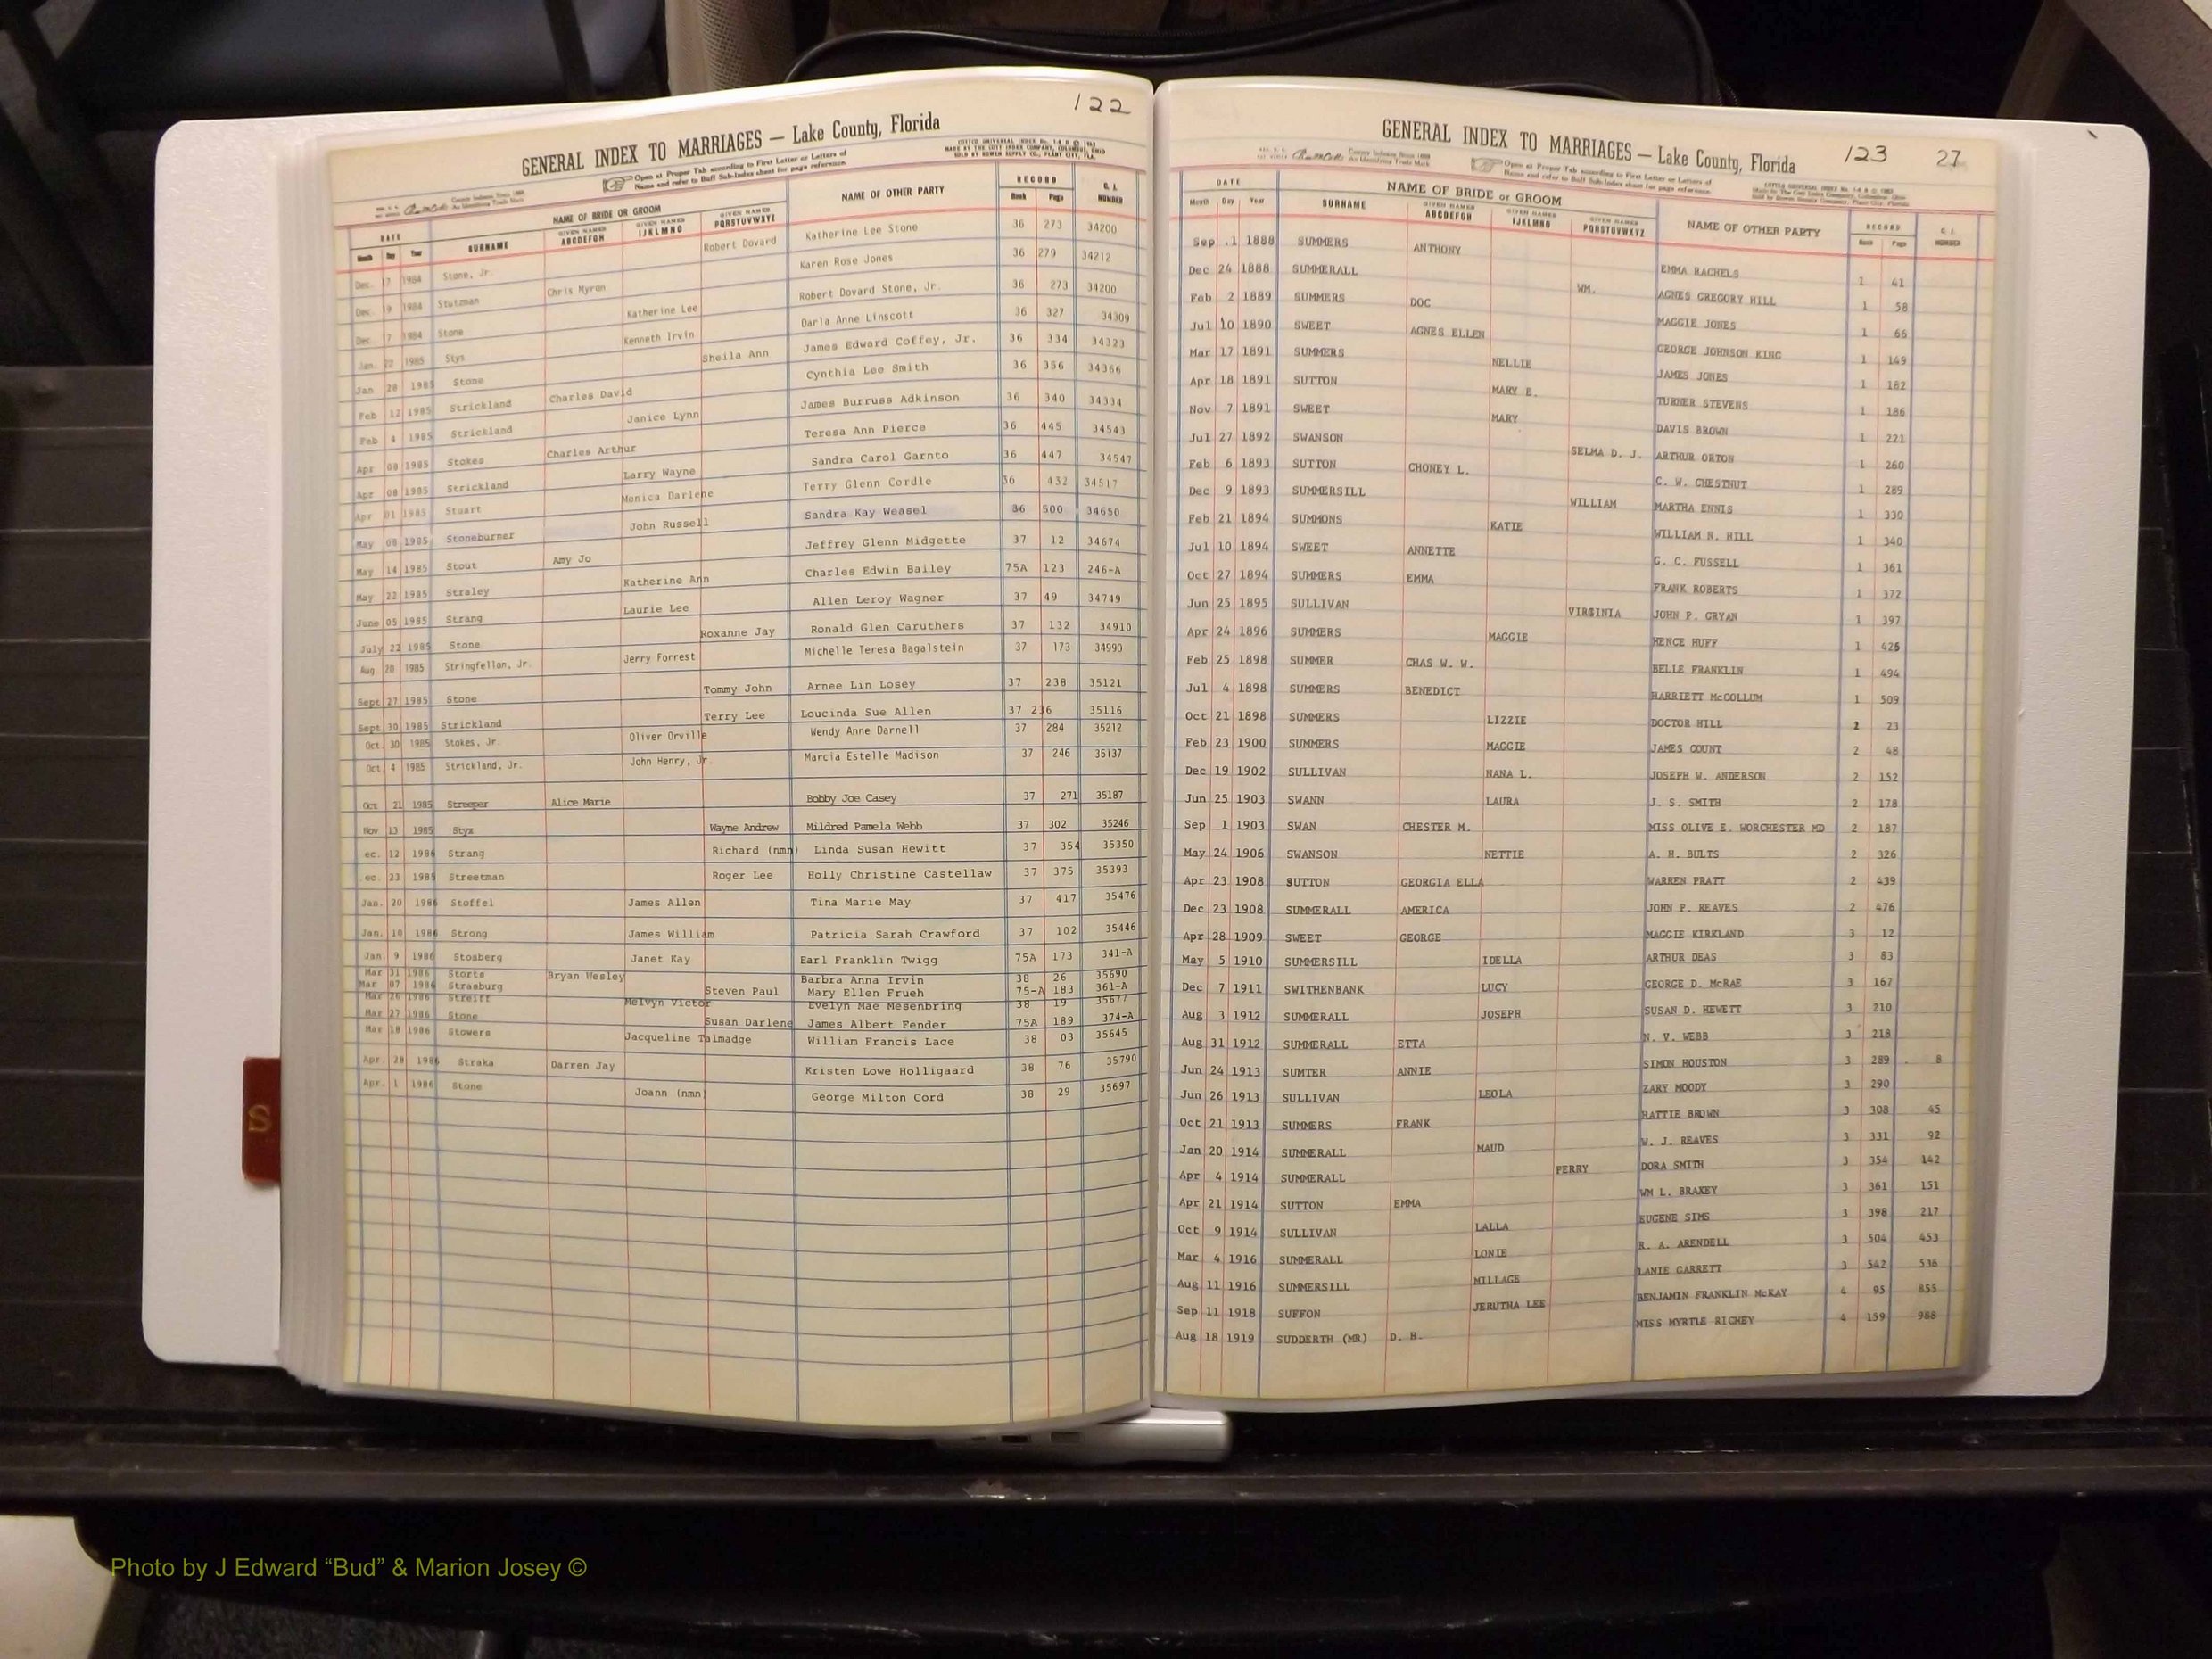 122
GENERAL INDEX TO MARRIAGES — Lake County, Florida
Open at Proper Tab according to First Letter or Letters of
Name and refer to Buff Sub-Index sheet for page reference.
DATE NAME OF BRIDE OR GROOM NAME OF OTHER PARTY RECORD C. I. NUMBER
Month Day Year SURNAME GIVEN NAMES ABCDEFGH GIVEN NAMES IJKLMNO GIVEN NAMES PQRSTUVWXYZ Book Page
Dec. 17 1984 Stone, Jr. Robert Dovard Katherine Lee Stone 36 273 34200
Dec. 19 1984 Stutzman Chris Myron Karen Rose Jones 36 279 34212
Dec 17 1984 Stone Katherine Lee Robert Dovard Stone, Jr. 36 273 34200
Jan. 22 1985 Stys Kenneth Irvin Darla Anne Linscott 36 327 34309
Jan 28 1985 Stone Sheila Ann James Edward Coffey, Jr. 36 334 34323
Feb 12 1985 Strickland Charles David Cynthia Lee Smith 36 356 34366
Feb 4 1985 Strickland Janice Lynn James Burruss Adkinson 36 340 34334
Apr 08 1985 Stokes Charles Arthur Teresa Ann Pierce 36 445 34543
Apr 08 1985 Strickland Larry Wayne Sandra Carol Garnto 36 447 34547
Apr 01 1985 Stuart Monica Darlene Terry Glenn Cordle 36 432 34517
May 08 1985 Stoneburner John Russell Sandra Kay Weasel 36 500 34650
May 14 1985 Stout Amy Jo Jeffrey Glenn Midgette 37 12 34674
May 22 1985 Straley Katherine Ann Charles Edwin Bailey 75A 123 246-A
June 05 1985 Strang Laurie Lee Allen Leroy Wagner 37 49 34749
July 22 1985 Stone Roxanne Jay Ronald Glen Caruthers 37 132 34910
Aug. 20 1985 Stringfellon, Jr. Jerry Forrest Michelle Teresa Bagalstein 37 173 34990
Sept 27 1985 Stone Tommy John Arnee Lin Losey 37 238 35121
Sept 30 1985 Strickland Terry Lee Loucinda Sue Allen 37 236 35116
Oct. 30 1985 Stokes, Jr. Oliver Orville Wendy Anne Darnell 37 284 35212
Oct. 4 1985 Strickland, Jr. John Henry, Jr. Marcia Estelle Madison 37 246 35137
Oct 21 1985 Streeper Alice Marie Bobby Joe Casey 37 271 35187
Nov 13 1985 Stys Wayne Andrew Mildred Pamela Webb 37 302 35246
ec. 12 1986 Strang Richard (nmn) Linda Susan Hewitt 37 354 35350
ec. 23 1985 Streetman Roger Lee Holly Christine Castellaw 37 375 35393
Jan. 20 1986 Stoffel James Allen Tina Marie May 37 417 35476
Jan. 10 1986 Strong James William Patricia Sarah Crawford 37 102 35446
Jan. 9 1986 Stosberg Janet Kay Earl Franklin Twigg 75A 173 341-A
Mar 31 1986 Storts Bryan Wesley Barbra Anna Irvin 38 26 35690
Mar 07 1986 Strasburg Steven Paul Mary Ellen Frueh 75-A 183 361-A
Mar 26 1986 Streiff Melvyn Victor Evelyn Mae Mesenbring 38 19 35677
Mar 27 1986 Stone Susan Darlene James Albert Fender 75A 189 374-A
Mar 18 1986 Stowers Jacqueline Talmadge William Francis Lace 38 03 35645
Apr. 28 1986 Straka Darren Jay Kristen Lowe Holligaard 38 76 35790
Apr. 1 1986 Stone Joann (nmn) George Milton Cord 38 29 35697
S
123 27
GENERAL INDEX TO MARRIAGES — Lake County, Florida
Open at Proper Tab according to First Letter or Letters of
Name and refer to Buff Sub-Index sheet for page reference.
DATE NAME OF BRIDE or GROOM NAME OF OTHER PARTY RECORD C. I. NUMBER
Month Day Year SURNAME GIVEN NAMES ABCDEFGH GIVEN NAMES IJKLMNO GIVEN NAMES PQRSTUVWXYZ Book Page
Sep 1 1888 SUMMERS ANTHONY EMMA RACHELS 1 41
Dec 24 1888 SUMMERALL WM. AGNES GREGORY HILL 1 58
Feb 2 1889 SUMMERS DOC MAGGIE JONES 1 66
Jul 10 1890 SWEET AGNES ELLEN GEORGE JOHNSON KING 1 149
Mar 17 1891 SUMMERS NELLIE JAMES JONES 1 182
Apr 18 1891 SUTTON MARY E. TURNER STEVENS 1 186
Nov 7 1891 SWEET MARY DAVIS BROWN 1 221
Jul 27 1892 SWANSON SELMA D. J. ARTHUR ORTON 1 260
Feb 6 1893 SUTTON CHONEY L. C. W. CHESTNUT 1 289
Dec 9 1893 SUMMERSILL WILLIAM MARTHA ENNIS 1 330
Feb 21 1894 SUMMONS KATIE WILLIAM N. HILL 1 340
Jul 10 1894 SWEET ANNETTE G. C. FUSSELL 1 361
Oct 27 1894 SUMMERS EMMA FRANK ROBERTS 1 372
Jun 25 1895 SULLIVAN VIRGINIA JOHN P. GRYAN 1 397
Apr 24 1896 SUMMERS MAGGIE HENCE HUFF 1 425
Feb 25 1898 SUMMER CHAS W. W. BELLE FRANKLIN 1 494
Jul 4 1898 SUMMERS BENEDICT HARRIETT McCOLLUM 1 509
Oct 21 1898 SUMMERS LIZZIE DOCTOR HILL 2 23
Feb 23 1900 SUMMERS MAGGIE JAMES COUNT 2 48
Dec 19 1902 SULLIVAN NANA L. JOSEPH W. ANDERSON 2 152
Jun 25 1903 SWANN LAURA J. S. SMITH 2 178
Sep 1 1903 SWAN CHESTER M. MISS OLIVE E. WORCHESTER MD 2 187
May 24 1906 SWANSON NETTIE A. H. BULTS 2 326
Apr 23 1908 SUTTON GEORGIA ELLA WARREN PRATT 2 439
Dec 23 1908 SUMMERALL AMERICA JOHN P. REAVES 2 476
Apr 28 1909 SWEET GEORGE MAGGIE KIRKLAND 3 12
May 5 1910 SUMMERSILL IDELLA ARTHUR DEAS 3 83
Dec 7 1911 SWITHENBANK LUCY GEORGE D. McRAE 3 167
Aug 3 1912 SUMMERALL JOSEPH SUSAN D. HEWETT 3 210
Aug 31 1912 SUMMERALL ETTA N. V. WEBB 3 218
Jun 24 1913 SUMTER ANNIE SIMON HOUSTON 3 289 8
Jun 26 1913 SULLIVAN LEOLA ZARY MOODY 3 290
Oct 21 1913 SUMMERS FRANK HATTIE BROWN 3 308 45
Jan 20 1914 SUMMERALL MAUD W. J. REAVES 3 331 92
Apr 4 1914 SUMMERALL PERRY DORA SMITH 3 354 142
Apr 21 1914 SUTTON EMMA WM L. BRAXEY 3 361 151
Oct 9 1914 SULLIVAN LALLA EUGENE SIMS 3 398 217
Mar 4 1916 SUMMERALL LONIE R. A. ARENDELL 3 504 453
Aug 11 1916 SUMMERSILL MILLAGE LANIE GARRETT 3 542 536
Sep 11 1918 SUFFON JERUTHA LEE BENJAMIN FRANKLIN McKAY 4 95 855
Aug 18 1919 SUDDERTH (MR) D. H. MISS MYRTLE RICHEY 4 159 988
Photo by J Edward “Bud” & Marion Josey ©